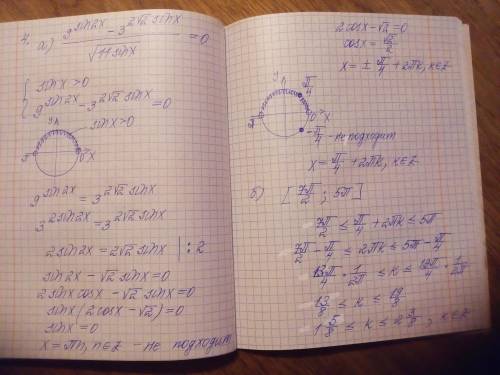 4.
а) (9^(sin2x) − 3^(2√2 sinx)) / √(11 sinx) = 0
{ sinx > 0
9^(sin2x) − 3^(2√2 sinx) = 0
y
sinx>0
π 0 x
9^(sin2x) = 3^(2√2 sinx)
3^(2sin2x) = 3^(2√2 sinx)
2sin2x = 2√2 sinx | : 2
sin2x − √2 sinx = 0
2sinx cosx − √2 sinx = 0
sinx (2cosx − √2) = 0
sinx = 0
x = πn, n∈Z – не подходит
2cosx − √2 = 0
cosx = √2/2
x = ± π/4 + 2πk, k∈Z
y π/4
π 0 x
−π/4 – не подходит
x = π/4 + 2πk, k∈Z
б) [7π/2 ; 5π]
7π/2 ≤ π/4 + 2πk ≤ 5π
7π/2 − π/4 ≤ 2πk ≤ 5π − π/4
13π/4 · 1/2π ≤ k ≤ 19π/4 · 1/2π
13/8 ≤ k ≤ 19/8
1 5/8 ≤ k ≤ 2 3/8, k∈Z